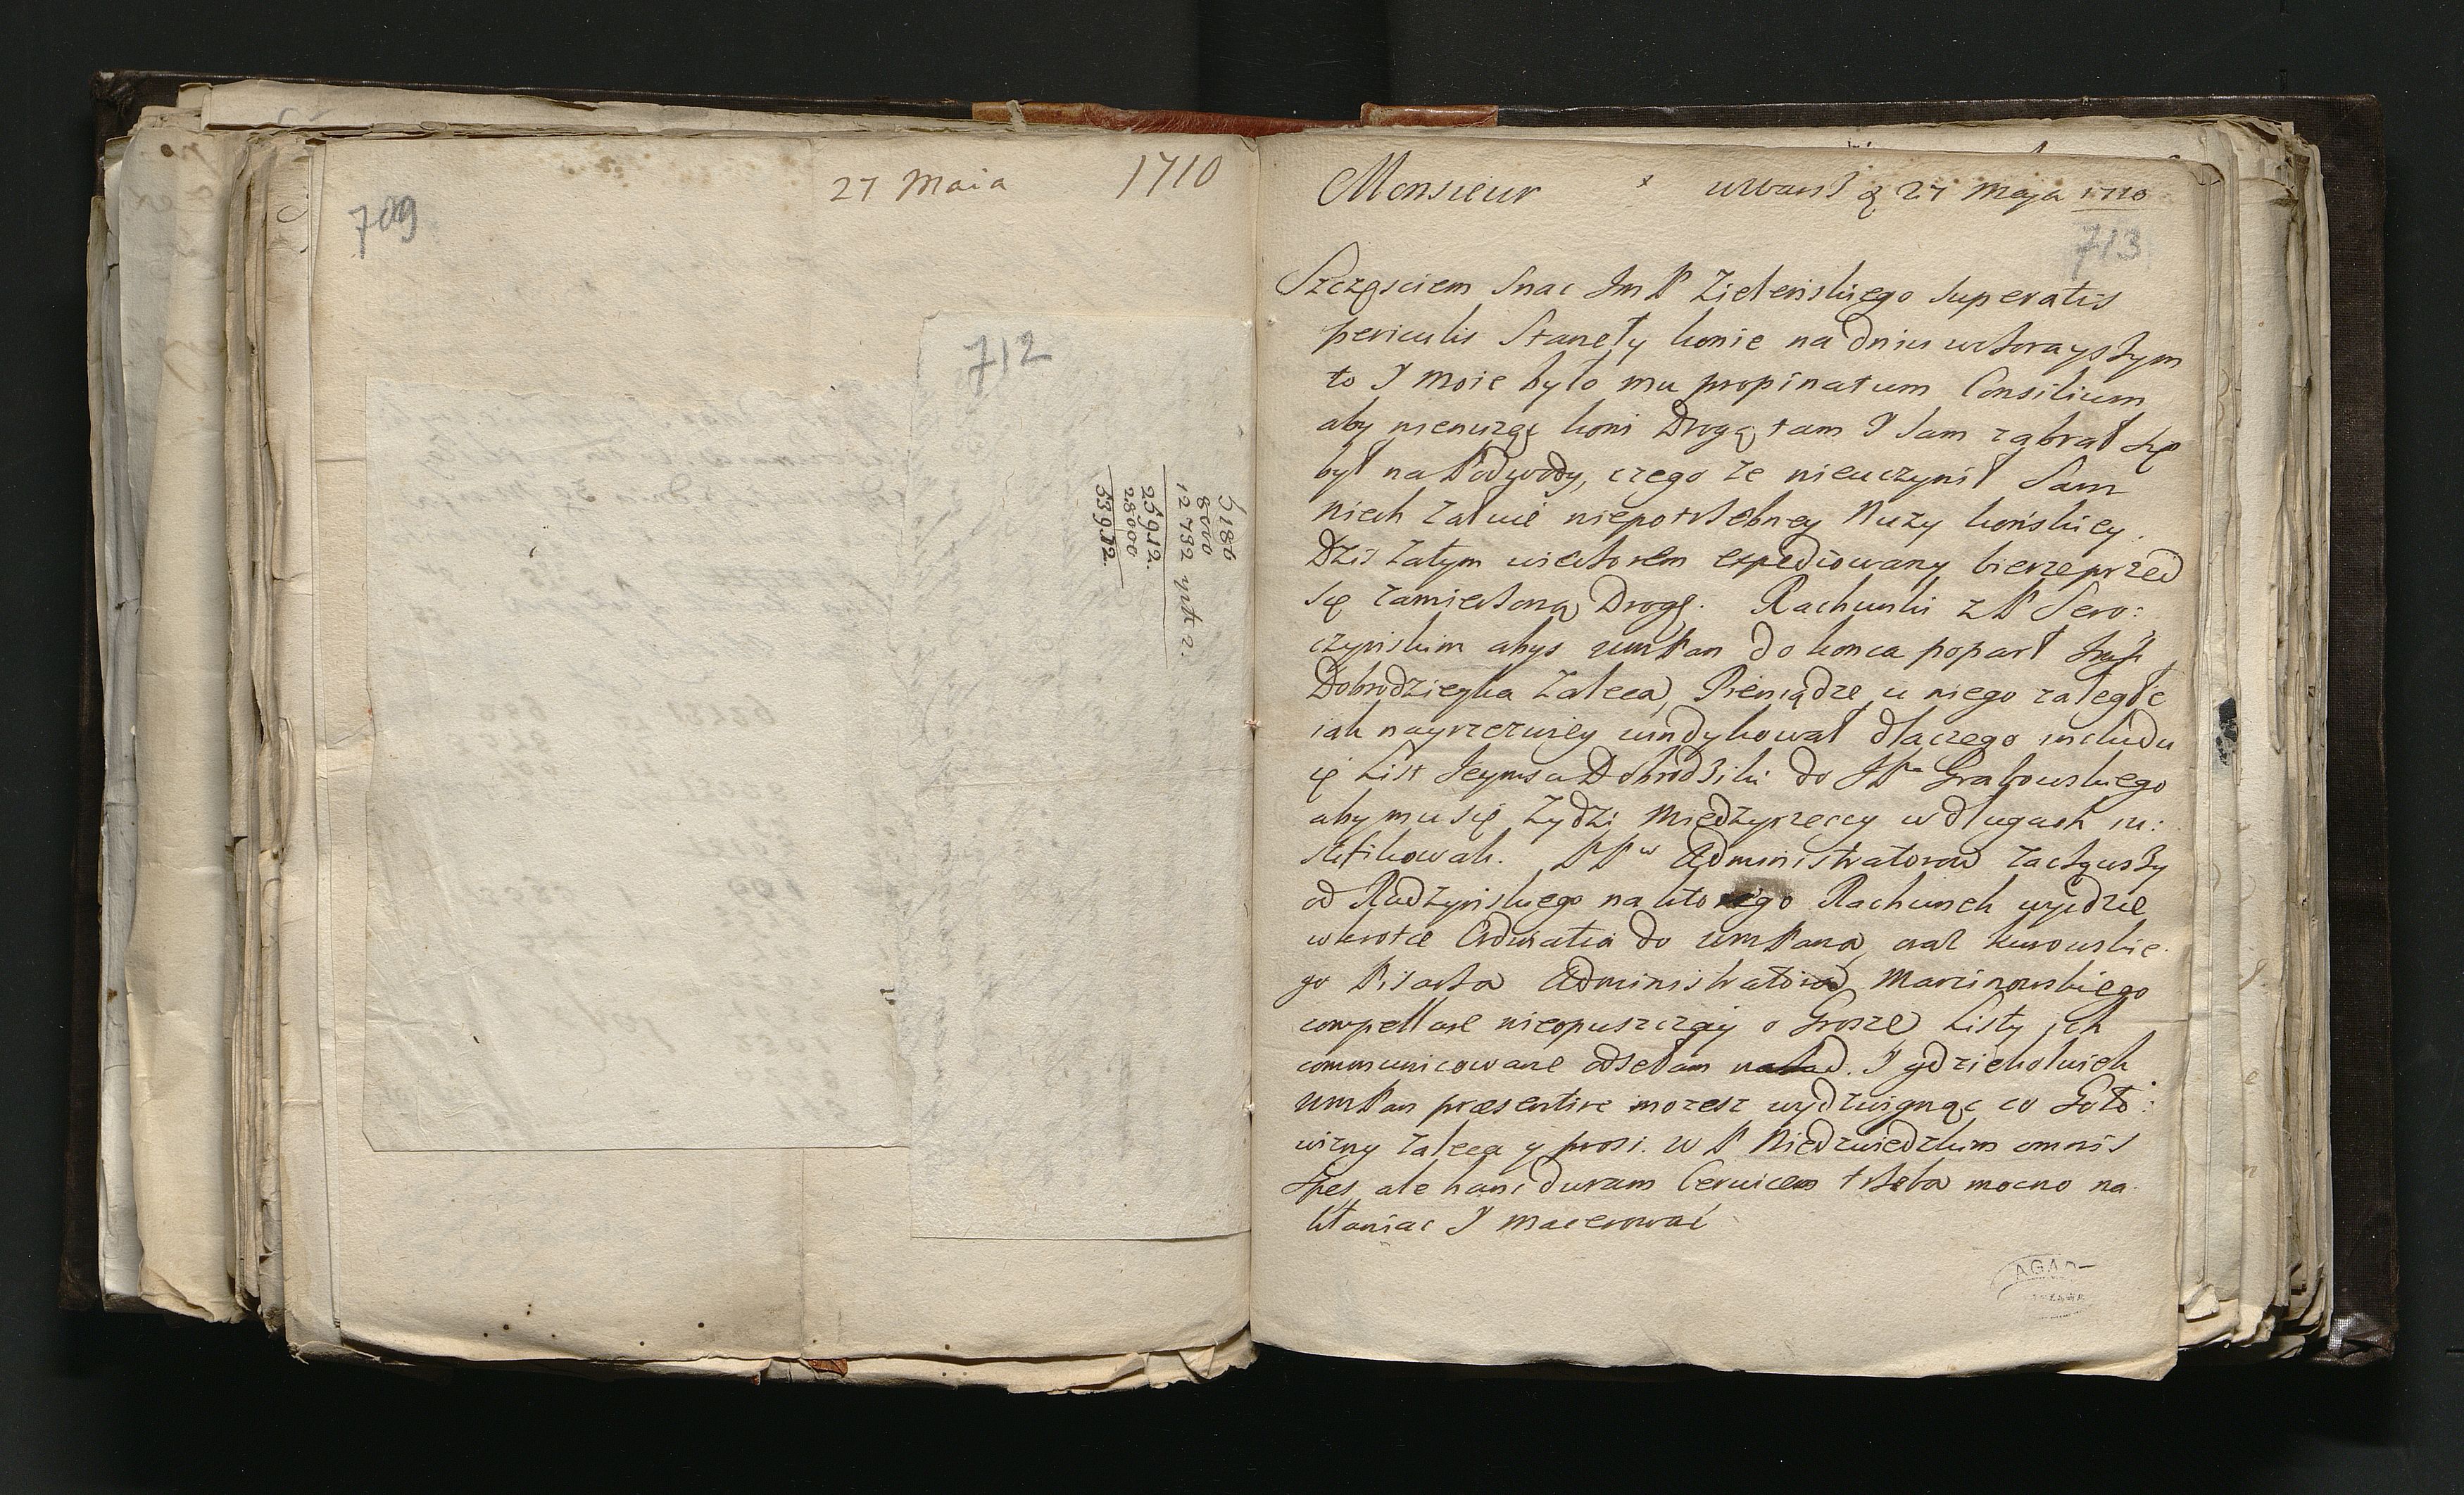 27 Maia 1710
709
712
5186
8000
12 732
25912.
28000
53912.
Monsieur
27 Maja 1710
713
Szczęsciem snac Im P Zielenskiego superatis
periculis Stanęły konie na dniu wczorayszym
to I moie było mu propinatum Consilium
aby nienużąc koni Drogą tam I sam zabrał się
był na Podwody, czego ze nieuczynił Sam
niech załuie niepotrzebney Nuzy końskiey.
Dzis zatym wieczorem expediowany bierze przed
się zamierzoną Drogę. Rachunki z P Sero:
czynskim abys WmPan do konca poparł
Dobrodzieyka zaleca, Pieniądze u niego zaległe
iak nayrzezwiey windykował dlaczego includu
ię List Jeymsci Dobrodziki do JPna Grabowskiego
aby mu się Zydzi Miedzyrzeccy w długach iu:
stifikowali. PPw Administratorow zacząwszy
od Rudzynskiego na ktorego Rachunek wyidzie
wkrotce Credwatia do WmPana, oraz Kurowskie
go Pisarza Administratora Marcinowskiego
compellare nieopuszczay o Grosze Listy ich
communicowane odsełam nazad. I gdziekolwiek
WmPan præsentire mozesz wydzwignąc co Goto:
wizny zaleca y prosi. W P Niedzwiedzkim omnis
spes, ale hanc duram Cervicem trzeba mocno na
kłaniac I macerowac
AGAD